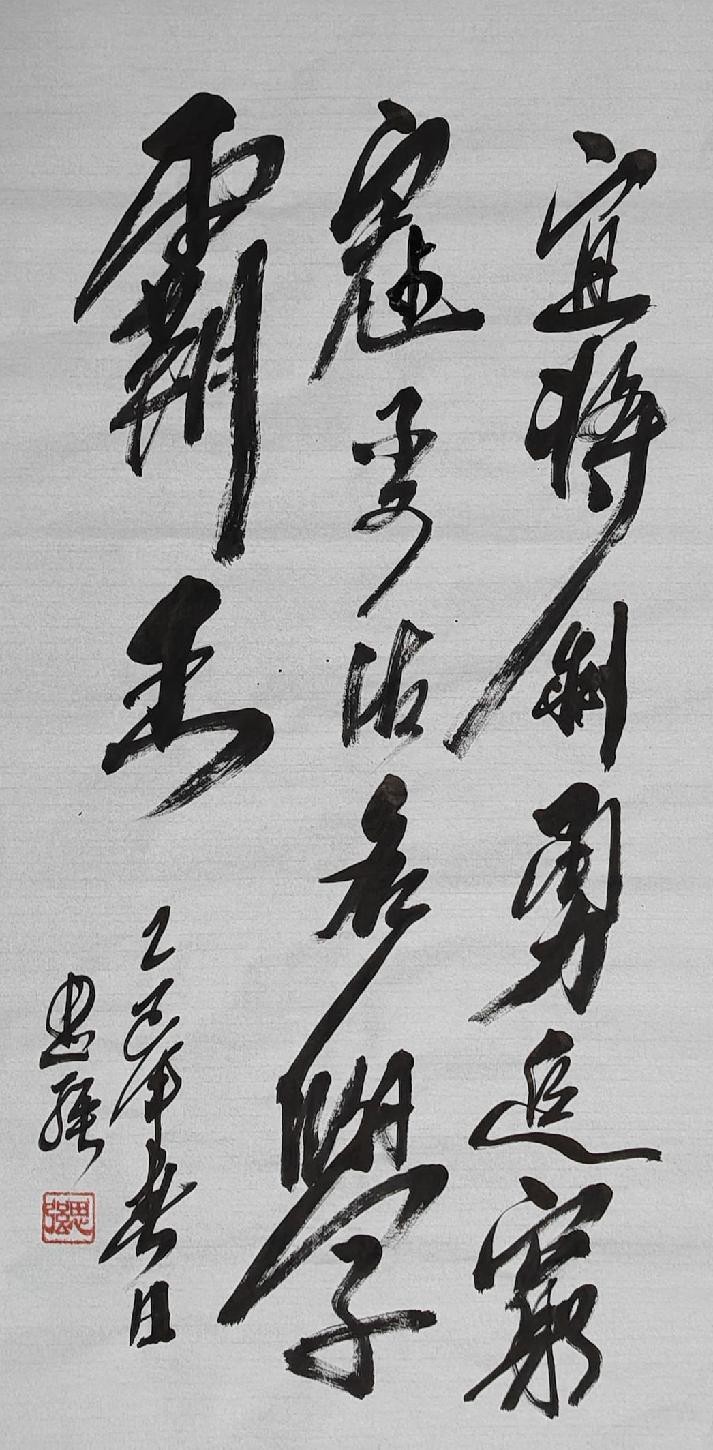 宜将剩勇追窮
寇不可沽名學
霸王
乙巳年春日
思强
思强